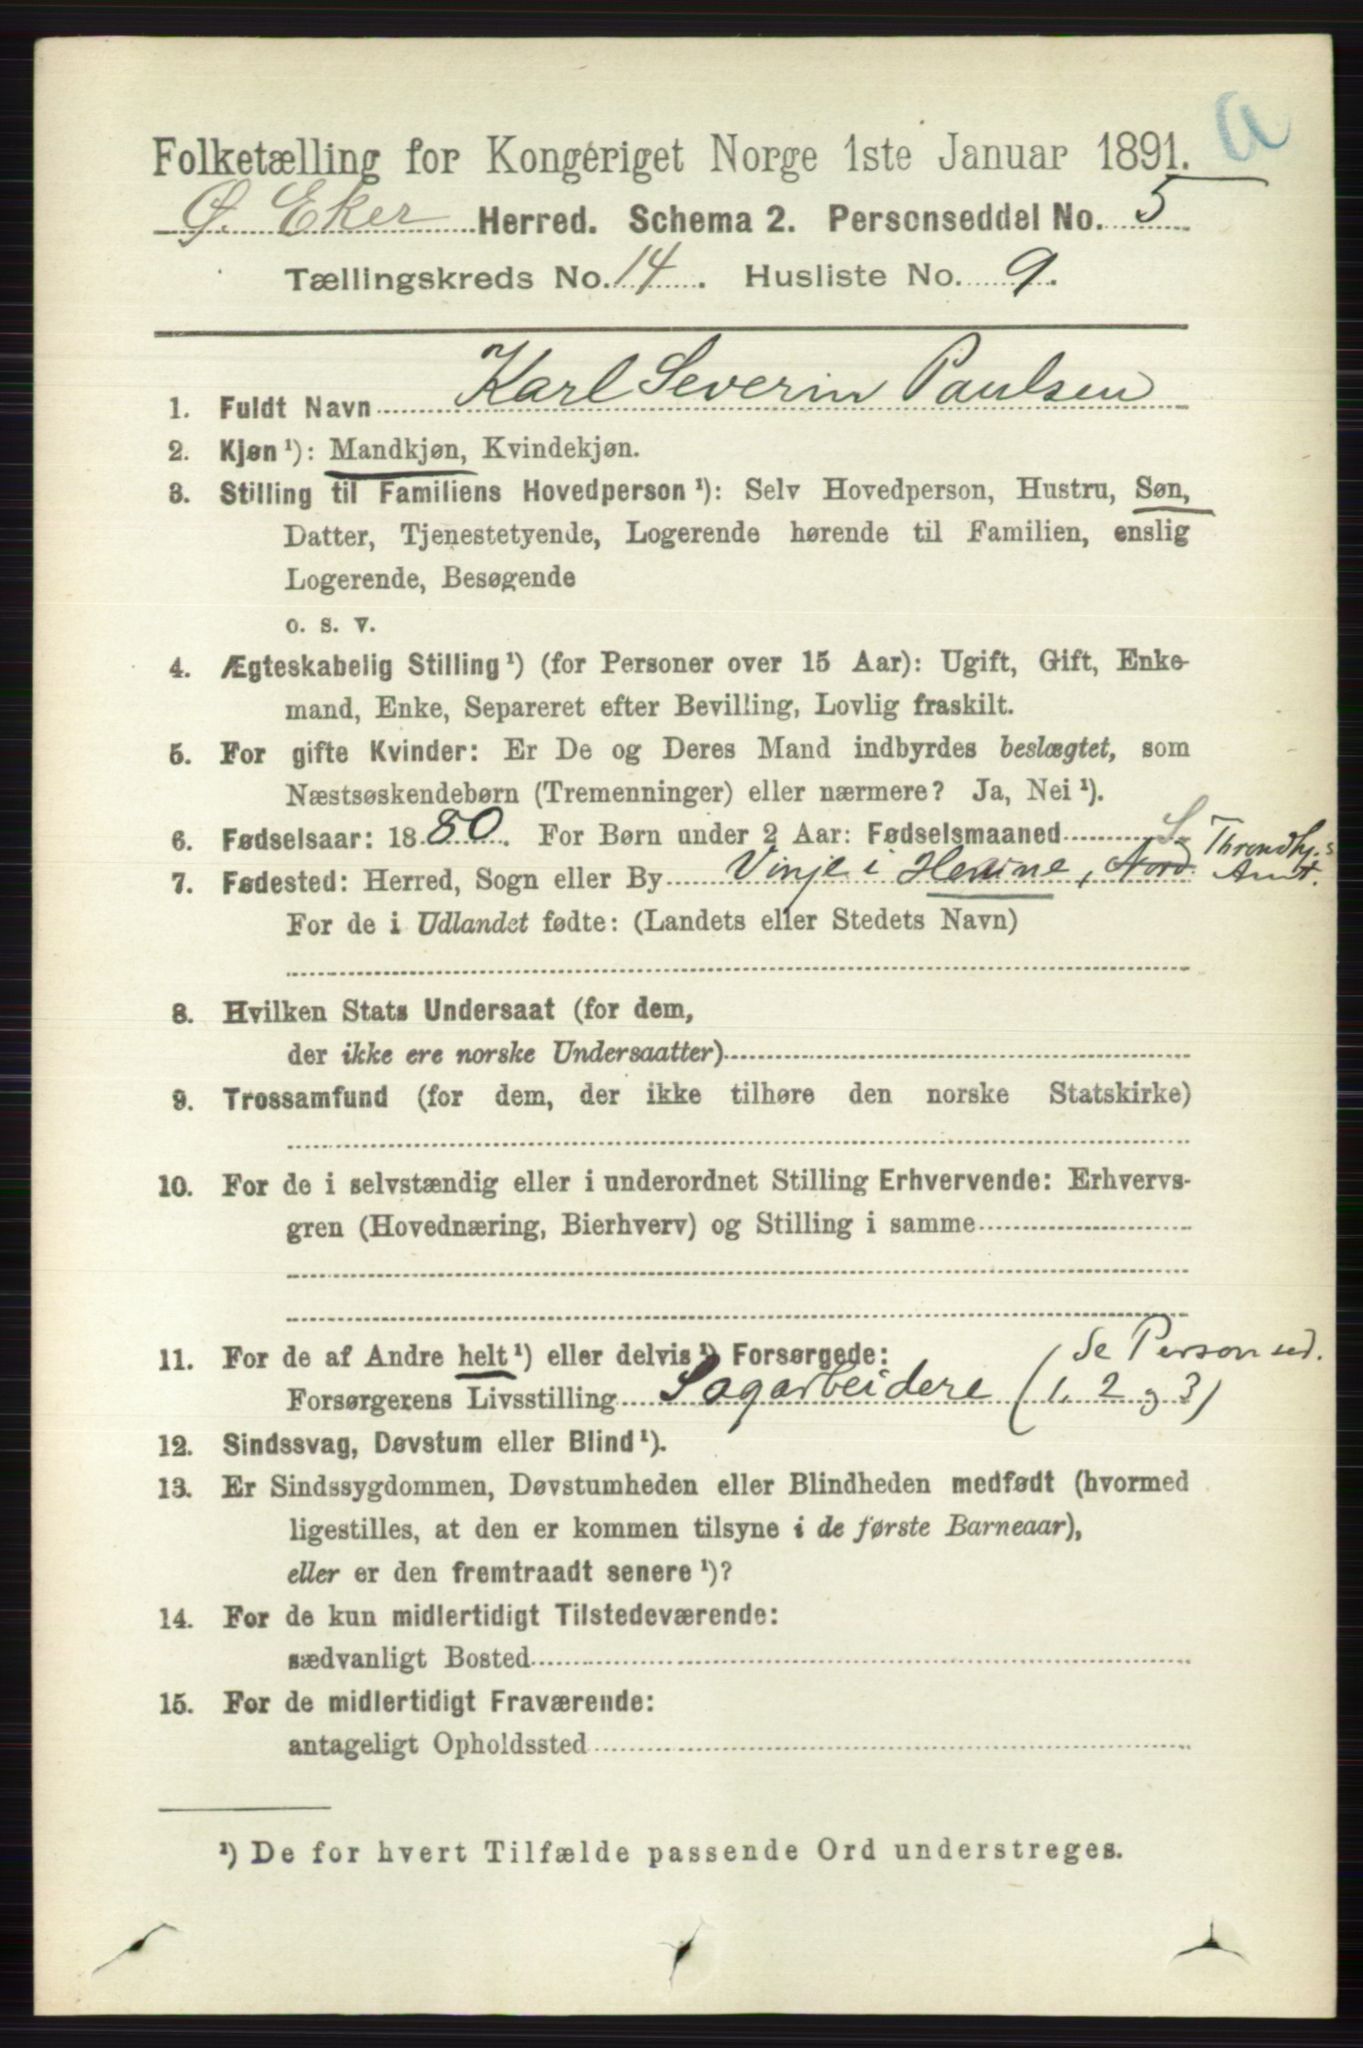 a
Folketælling for Kongeriget Norge 1ste Januar 1891.
Ø. Eker Herred. Schema 2. Personseddel No. 5
Tællingskreds No. 14. Husliste No. 9.
1. Fuldt Navn Karl Severin Paulsen
2. Kjøn¹): Mandkjøn, Kvindekjøn.
3. Stilling til Familiens Hovedperson¹): Selv Hovedperson, Hustru, Søn,
Datter, Tjenestetyende, Logerende hørende til Familien, enslig
Logerende, Besøgende
o. s. v.
4. Ægteskabelig Stilling¹) (for Personer over 15 Aar): Ugift, Gift, Enke-
mand, Enke, Separeret efter Bevilling, Lovlig fraskilt.
5. For gifte Kvinder: Er De og Deres Mand indbyrdes beslægtet, som
Næstsøskendebørn (Tremenninger) eller nærmere? Ja, Nei¹).
6. Fødselsaar: 1880. For Børn under 2 Aar: Fødselsmaaned
S. Throndhj.s
7. Fødested: Herred, Sogn eller By Vinje i Hemne, Nord Amt.
For de i Udlandet fødte: (Landets eller Stedets Navn)
8. Hvilken Stats Undersaat (for dem,
der ikke ere norske Undersaatter)
9. Trossamfund (for dem, der ikke tilhøre den norske Statskirke)
10. For de i selvstændig eller i underordnet Stilling Erhvervende: Erhvervs-
gren (Hovednæring, Bierhverv) og Stilling i samme
11. For de af Andre helt¹) eller delvis¹) Forsørgede: (Se Personsed.
Forsørgerens Livsstilling Sagarbeidere 1, 2 og 3)
12. Sindssvag, Døvstum eller Blind¹).
13. Er Sindssygdommen, Døvstumheden eller Blindheden medfødt (hvormed
ligestilles, at den er kommen tilsyne i de første Barneaar),
eller er den fremtraadt senere¹)?
14. For de kun midlertidigt Tilstedeværende:
sædvanligt Bosted
15. For de midlertidigt Fraværende:
antageligt Opholdssted
¹) De for hvert Tilfælde passende Ord understreges.